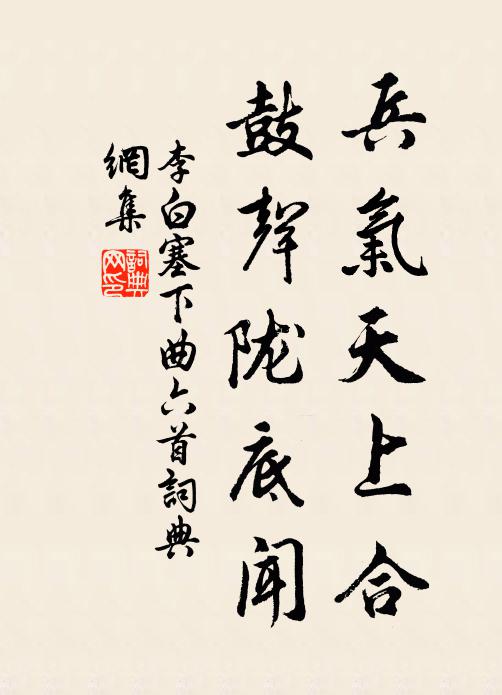 兵氣天上合
鼓聲陇底闻
李白塞下曲六首詞典
網集
詞典
网印